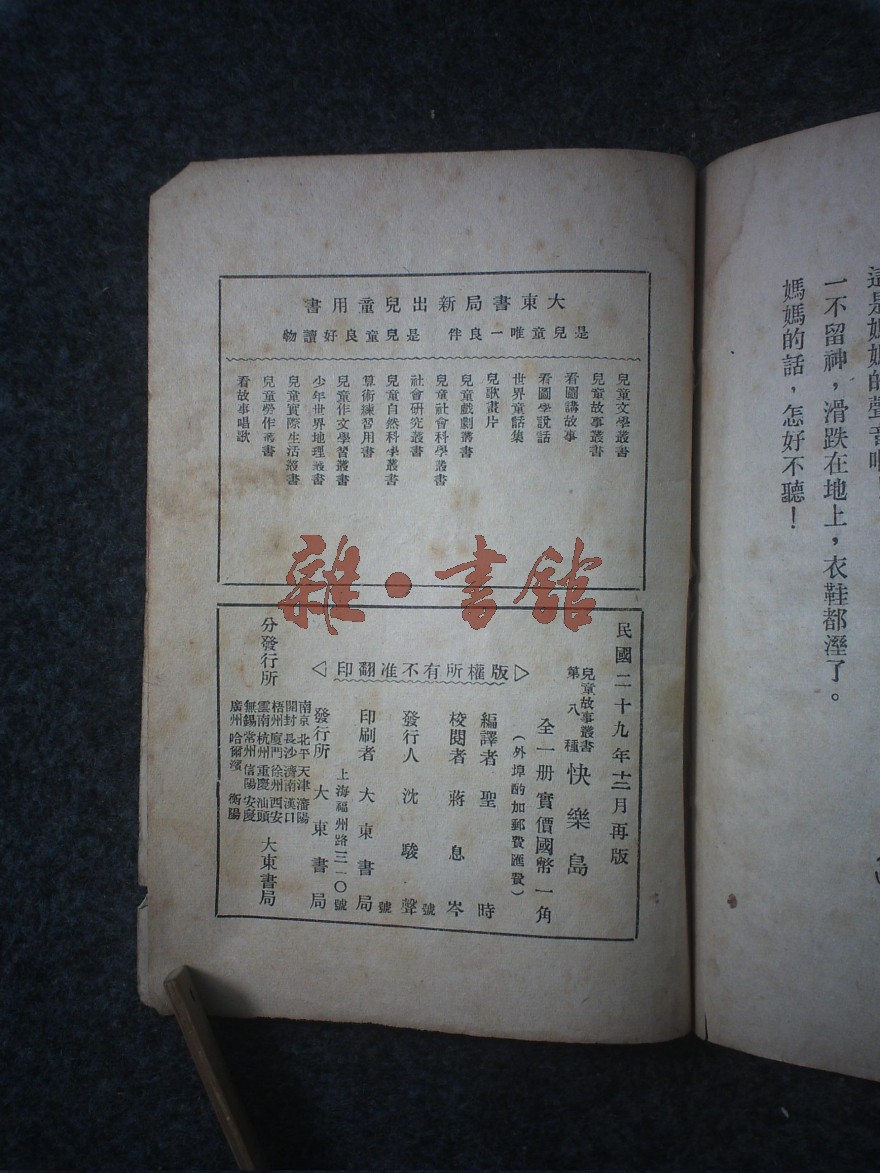 這是媽媽的聲音
一不留神，滑跌在地上，衣鞋都溼了。
媽媽的話，怎好不聽！
大東書局新出兒童用書
是兒童唯一良伴 是兒童良好讀物
兒童文學叢書
兒童故事叢書
看圖講故事
看圖學說話
世界童話集
兒歌畫片
兒童戲劇叢書
兒童社會科學叢書
社會研究叢書
兒童自然科學叢書
算術練習用書
兒童作文學習叢書
少年世界地理叢書
兒童實際生活叢書
兒童勞作叢書
看故事唱歌
雜·書館
民國二十九年十二月再版
兒童故事叢書
第八種
快樂島
全一册實價國幣一角
（外埠酌加郵費匯費）
▷版權所有不准翻印◁
編譯者 聖時
校閱者 蔣息岑
發行人 沈駿聲
號
印刷者 大東書局
號
上海福州路三一〇號
發行所 大東書局
分發行所
南京 北平 天津 瀋陽
開封 長沙 濟南 漢口
梧州 廈門 徐州 西安
雲南 杭州 重慶 汕頭
無錫 常州 信陽 安慶
廣州 哈爾濱 衡陽
大東書局